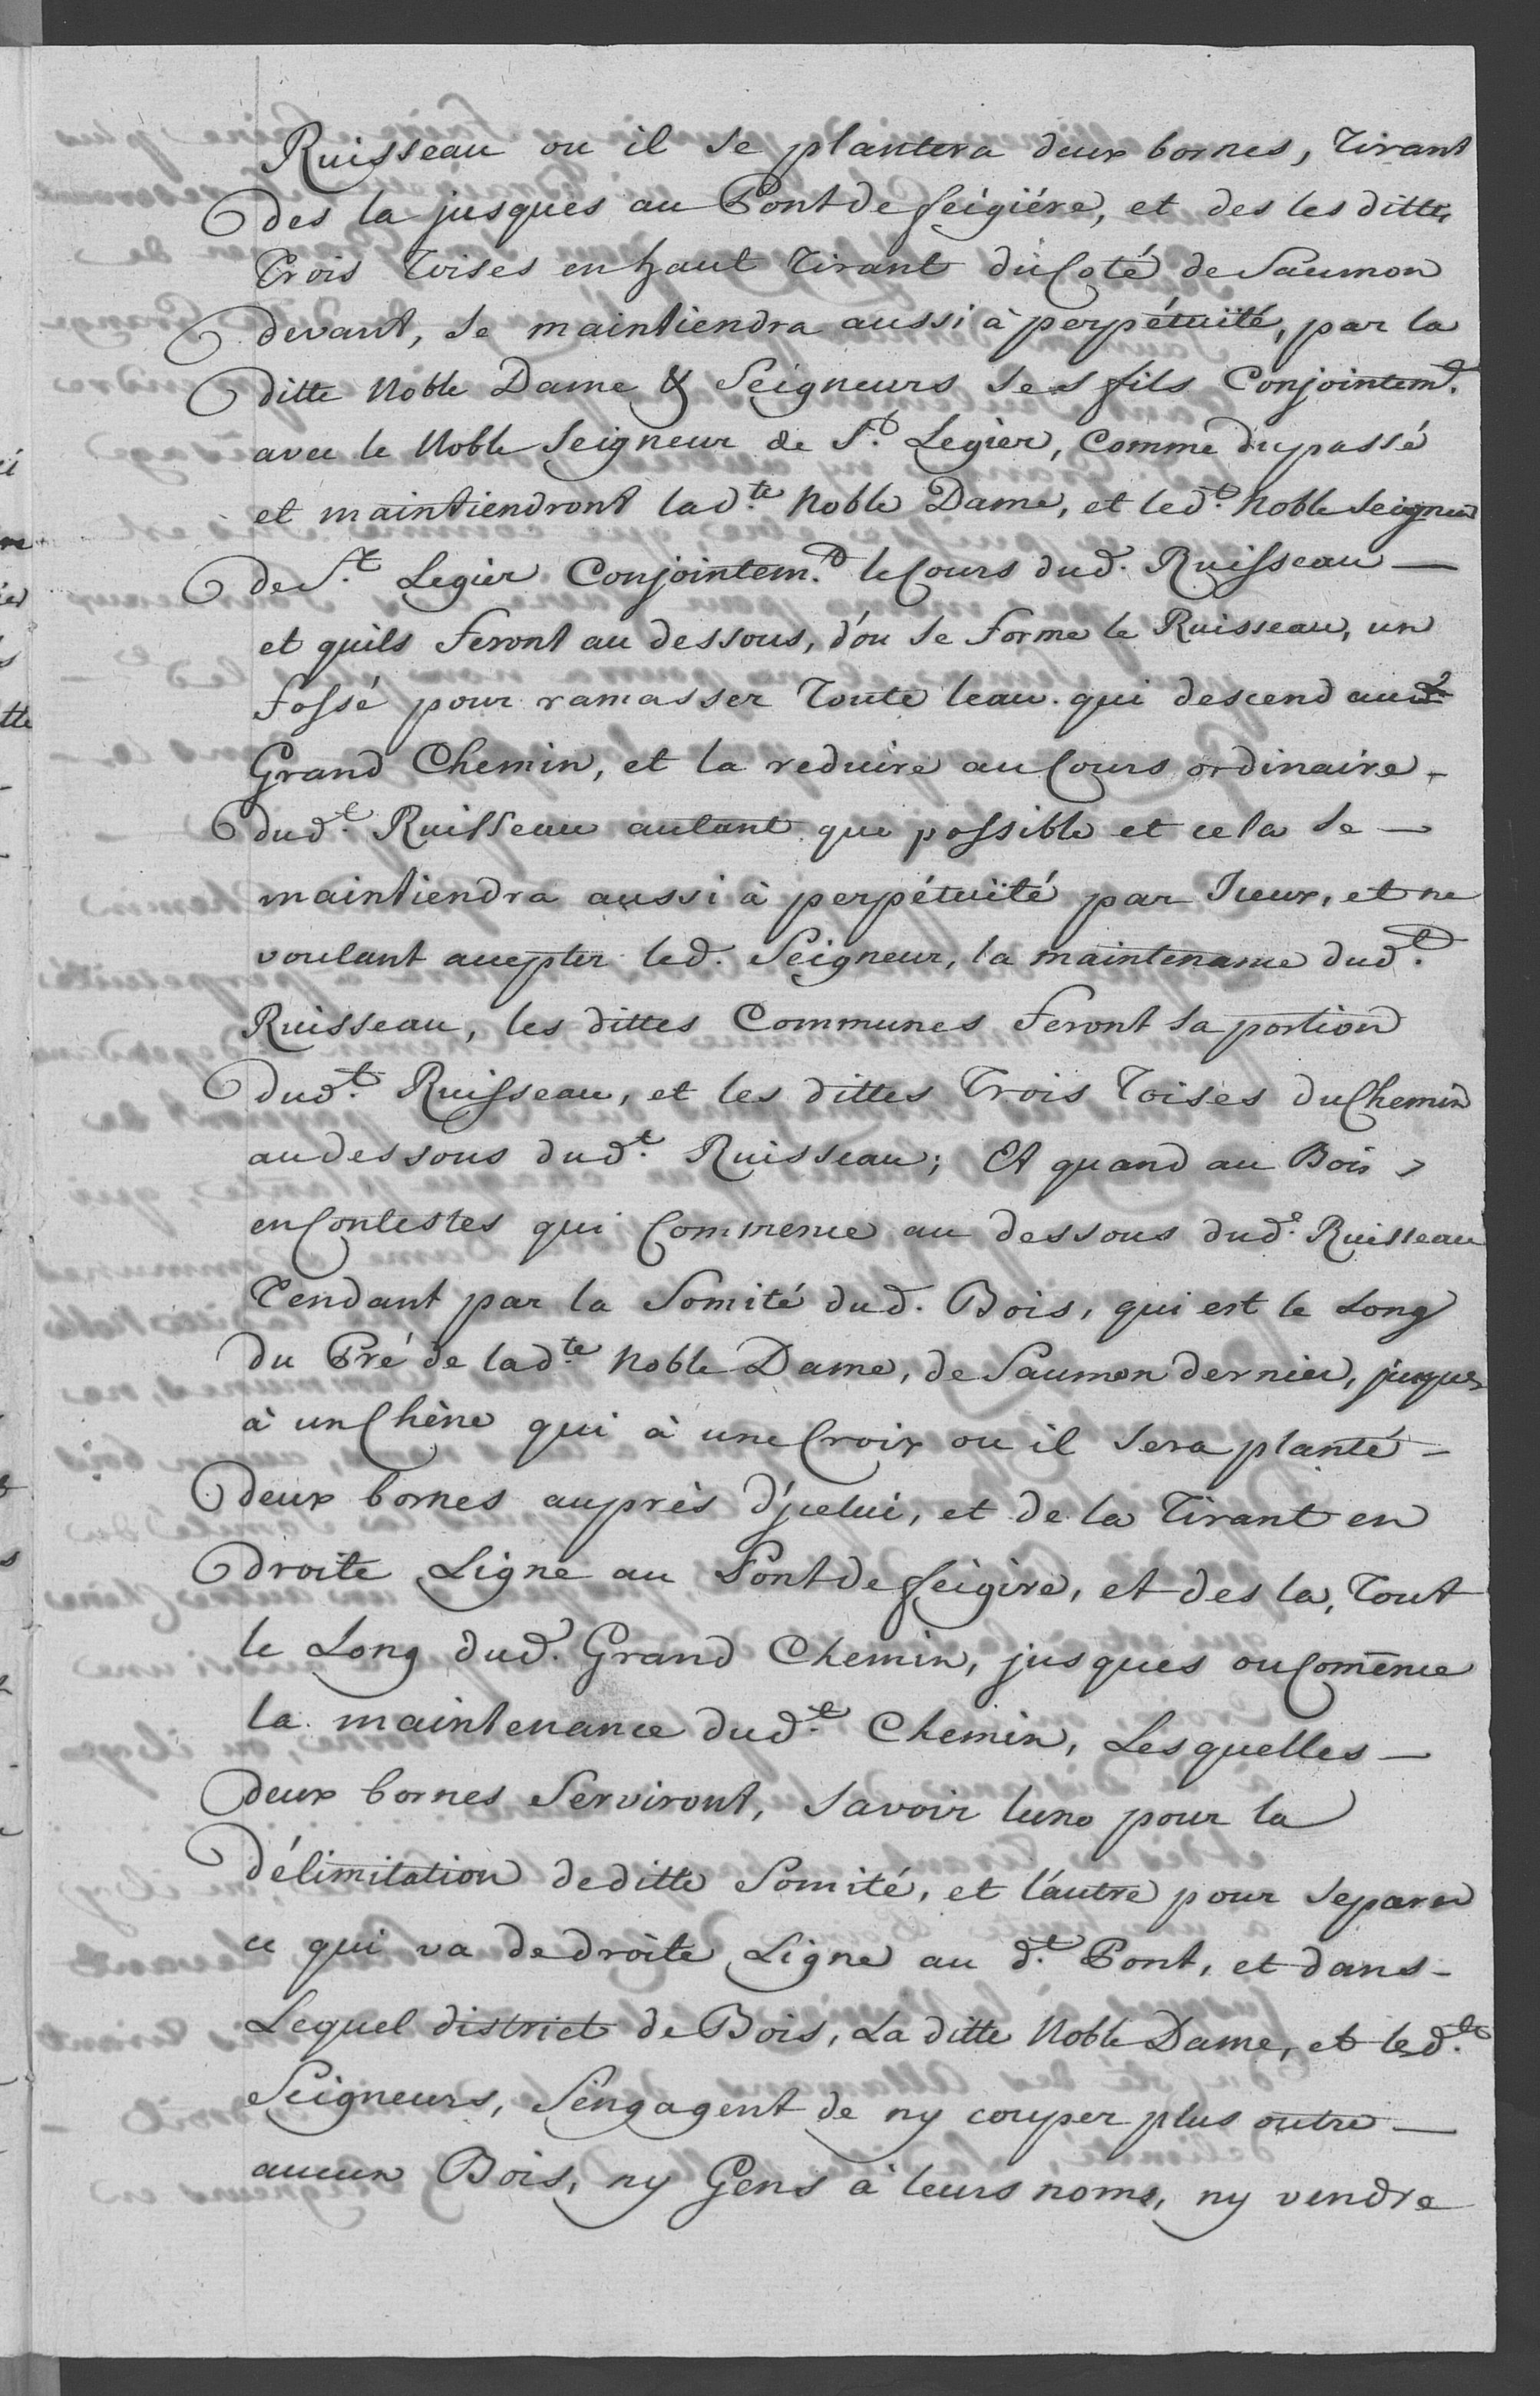 Ruisseau ou il se plantera deux bornes, Tirant
des la jusques au Pont de feigiére, et des les dittes
Trois toises en haut Tirant du Coté de Saumon
devant, se maintiendra aussi à perpétuité, par la
ditte Noble Dame & Seigneurs ses fils Conjointemt.
avec le Noble Seigneur de St. Legier, Comme du passé
et maintiendront lad.te Noble Dame, et led.t Noble Seigneur
de St. Legier Conjointem.t le Cours dud. Ruisseau —
et quils feront au dessous, d'ou se forme le Ruisseau, un
fossé pour ramasser Toute leau. qui descend aud.t
Grand Chemin, et la reduire au Cours ordinaire -
dud.t Ruisseau autant que possible et cela se —
maintiendra aussi à perpétuité par Iceux, et ne
voulant accepter led. Seigneur, la maintenance dud.t
Ruisseau, les dittes Communes feront sa portion
dud.t Ruisseau, et les dittes Trois Toises du Chemin
au dessous dud.t Ruisseau; Et quand au Bois
en Contestes qui Commence au dessous dud.t Ruisseau
Tendant par la Somité dud. Bois, qui est le Long
du Pré de lad.te Noble Dame, de Saumon dernier, jusques
à un Chêne qui à une Croix ou il sera planté -
deux bornes auprès d'jcelui, et de la Tirant en
droite Ligne au Pont de feigire, et des la, Tout
le Long dud. Grand Chemin, jusques ou Comēnce
la maintenance dud.t Chemin, Lesquelles —
deux bornes Serviront, savoir lune pour la
délimitation de ditte Somité, et l'autre pour separer
ce qui va de droite Ligne au d.t Pont, et dans -
Lequel district de Bois, La ditte Noble Dame, et lesd.ts
Seigneurs, S'engagent de ny couper plus outre —
aucun Bois, ny Gens à leurs noms, ny vendre